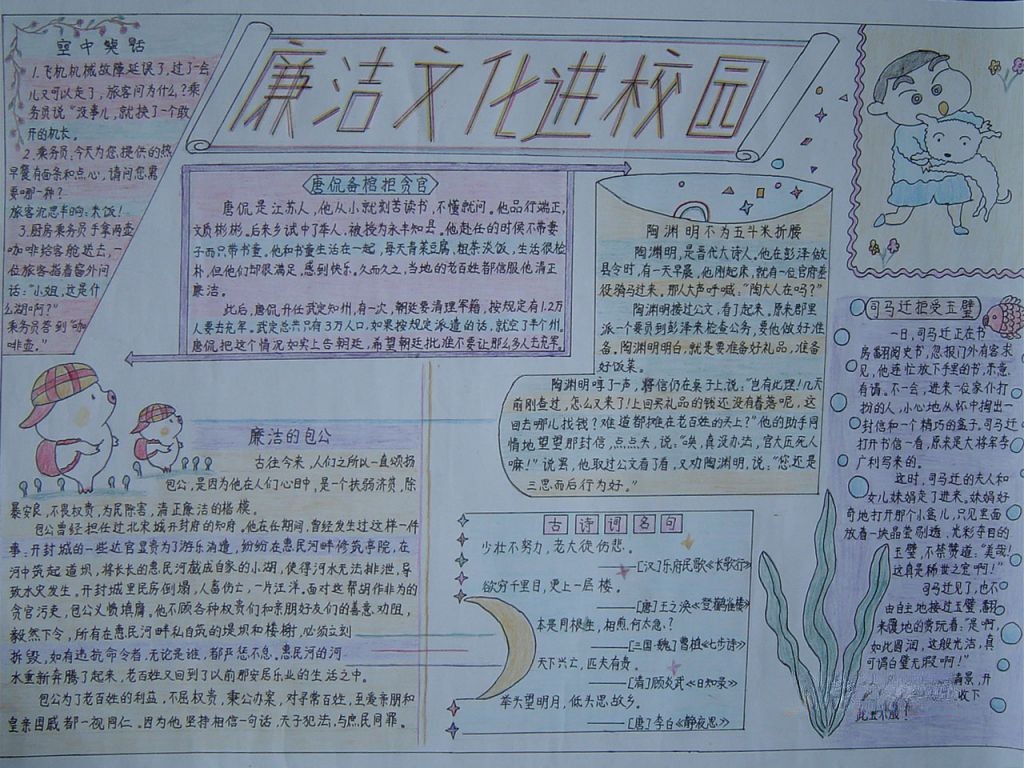 廉洁文化进校园
空中笑话
1.飞机机械故障延误了,过了一会
儿又可以走了,旅客问为什么?乘
务员说“没事儿,就换了一个敢
开的机长。
2.乘务员:今天为您提供的热
早餐有面条和点心,请问您需
要哪一种?
旅客沉思半晌:米饭!
3.厨房乘务员手拿两壶
咖啡给客舱送去,一
位旅客指着窗外问
话:“小姐,这是什
么湖啊?”
乘务员答到“咖
啡壶。”
唐侃备棺拒贪官
唐侃是江苏人,他从小就刻苦读书,不懂就问。他品行端正,
文质彬彬。后来乡试中了举人,被授为永丰知县。他赴任的时候不带妻
子而只带书童,他和书童生活在一起,每天青菜豆腐,粗茶淡饭,生活很俭
朴,但他们却很满足,感到快乐。久而久之,当地的老百姓都信服他清正
廉洁。
此后,唐侃升任武定知州,有一次,朝廷要清理军籍,按规定有1.2万
人要去充军。武定总共只有3万人口,如果按规定派遣的话,就空了半个州。
唐侃把这个情况如实上告朝廷,希望朝廷批准不要让那么多人去充军。
陶渊明不为五斗米折腰
陶渊明,是晋代大诗人。他在彭泽做
县令时,有一天早晨,他刚起床,就有一位官府差
役骑马过来,那人大声呼喊:“陶大人在吗?”
陶渊明接过公文,看了起来。原来郡里
派一个要员到彭泽来检查公务,要他做好准
备。陶渊明明白,就是要准备好礼品,准备
好饭菜。
陶渊明哼了声,将信仍在桌子上,说:“岂有此理!几天
前刚查过,怎么又来了!上回买礼品的钱还没有着落呢,这
回去哪儿找钱?难道都摊在老百姓的头上?”他的助手同
情地望望那封信,点点头,说:“唉,真没办法,官大压死人
嘛!”说罢,他取过公文看了看,又劝陶渊明,说:“您还是
三思而后行为好。”
司马迁拒受玉璧
一日,司马迁正在书
房翻阅史书,忽报门外有客求
见,他连忙放下手里的书,示意
有请。不一会,进来一位家仆打
扮的人,小心地从怀中掏出一
封信和一个精巧的盒子,司马迁
打开书信一看,原来是大将军李
广利写来的。
这时,司马迁的夫人和
女儿妹娟走了进来。妹娟好
奇地打开那个小盒儿,只见里面
放着一块晶莹剔透、光彩夺目的
玉璧,不禁赞道:“美哉!
这真是稀世之宝啊!”
司马迁见了,也不
由自主地接过玉璧,翻
来覆地的赏玩着。“是啊,
如此圆润,这般光洁,真
可谓白璧无瑕啊!”
廉洁的包公
古往今来,人们之所以一直颂扬
包公,是因为他在人们心目中,是一个扶弱济贫,除
暴安良,不畏权贵,为民除害,清正廉洁的楷模。
包公曾经担任过北宋城开封府的知府。他在任期间,曾经发生过这样一件
事:开封城的一些达官显贵为了游乐消遣,纷纷在惠民河畔修筑亭院,在
河中筑起道坝,将长长的惠民河截成自家的小湖,使得河水无法排泄,导
致水灾发生。开封城里民房倒塌,人畜伤亡,一片汪洋。面对这帮胡作非为的
贪官污吏,包公义愤填膺。他不顾各种权贵们和亲朋好友们的善意劝阻,
毅然下令,所有在惠民河畔私自筑的堤坝和楼榭,必须立刻
拆毁,如有违抗命令者,无论是谁,都严惩不怠。惠民河的河
水重新奔腾了起来,老百姓又回到了以前那安居乐业的生活之中。
包公为了老百姓的利益,不屈权贵,秉公办案,对寻常百姓,至爱亲朋和
皇亲国戚都一视同仁。因为他坚持相信一句话,天子犯法,与庶民同罪。
古诗词名句
少壮不努力,老大徒伤悲。
——[汉]乐府民歌《长歌行》
欲穷千里目,更上一层楼。
——[唐]王之涣《登鹳雀楼》
本是同根生,相煎何太急?
——[三国·魏]曹植《七步诗》
天下兴亡,匹夫有责。
——[清]顾炎武《日知录》
举头望明月,低头思故乡。
——[唐]李白《静夜思》